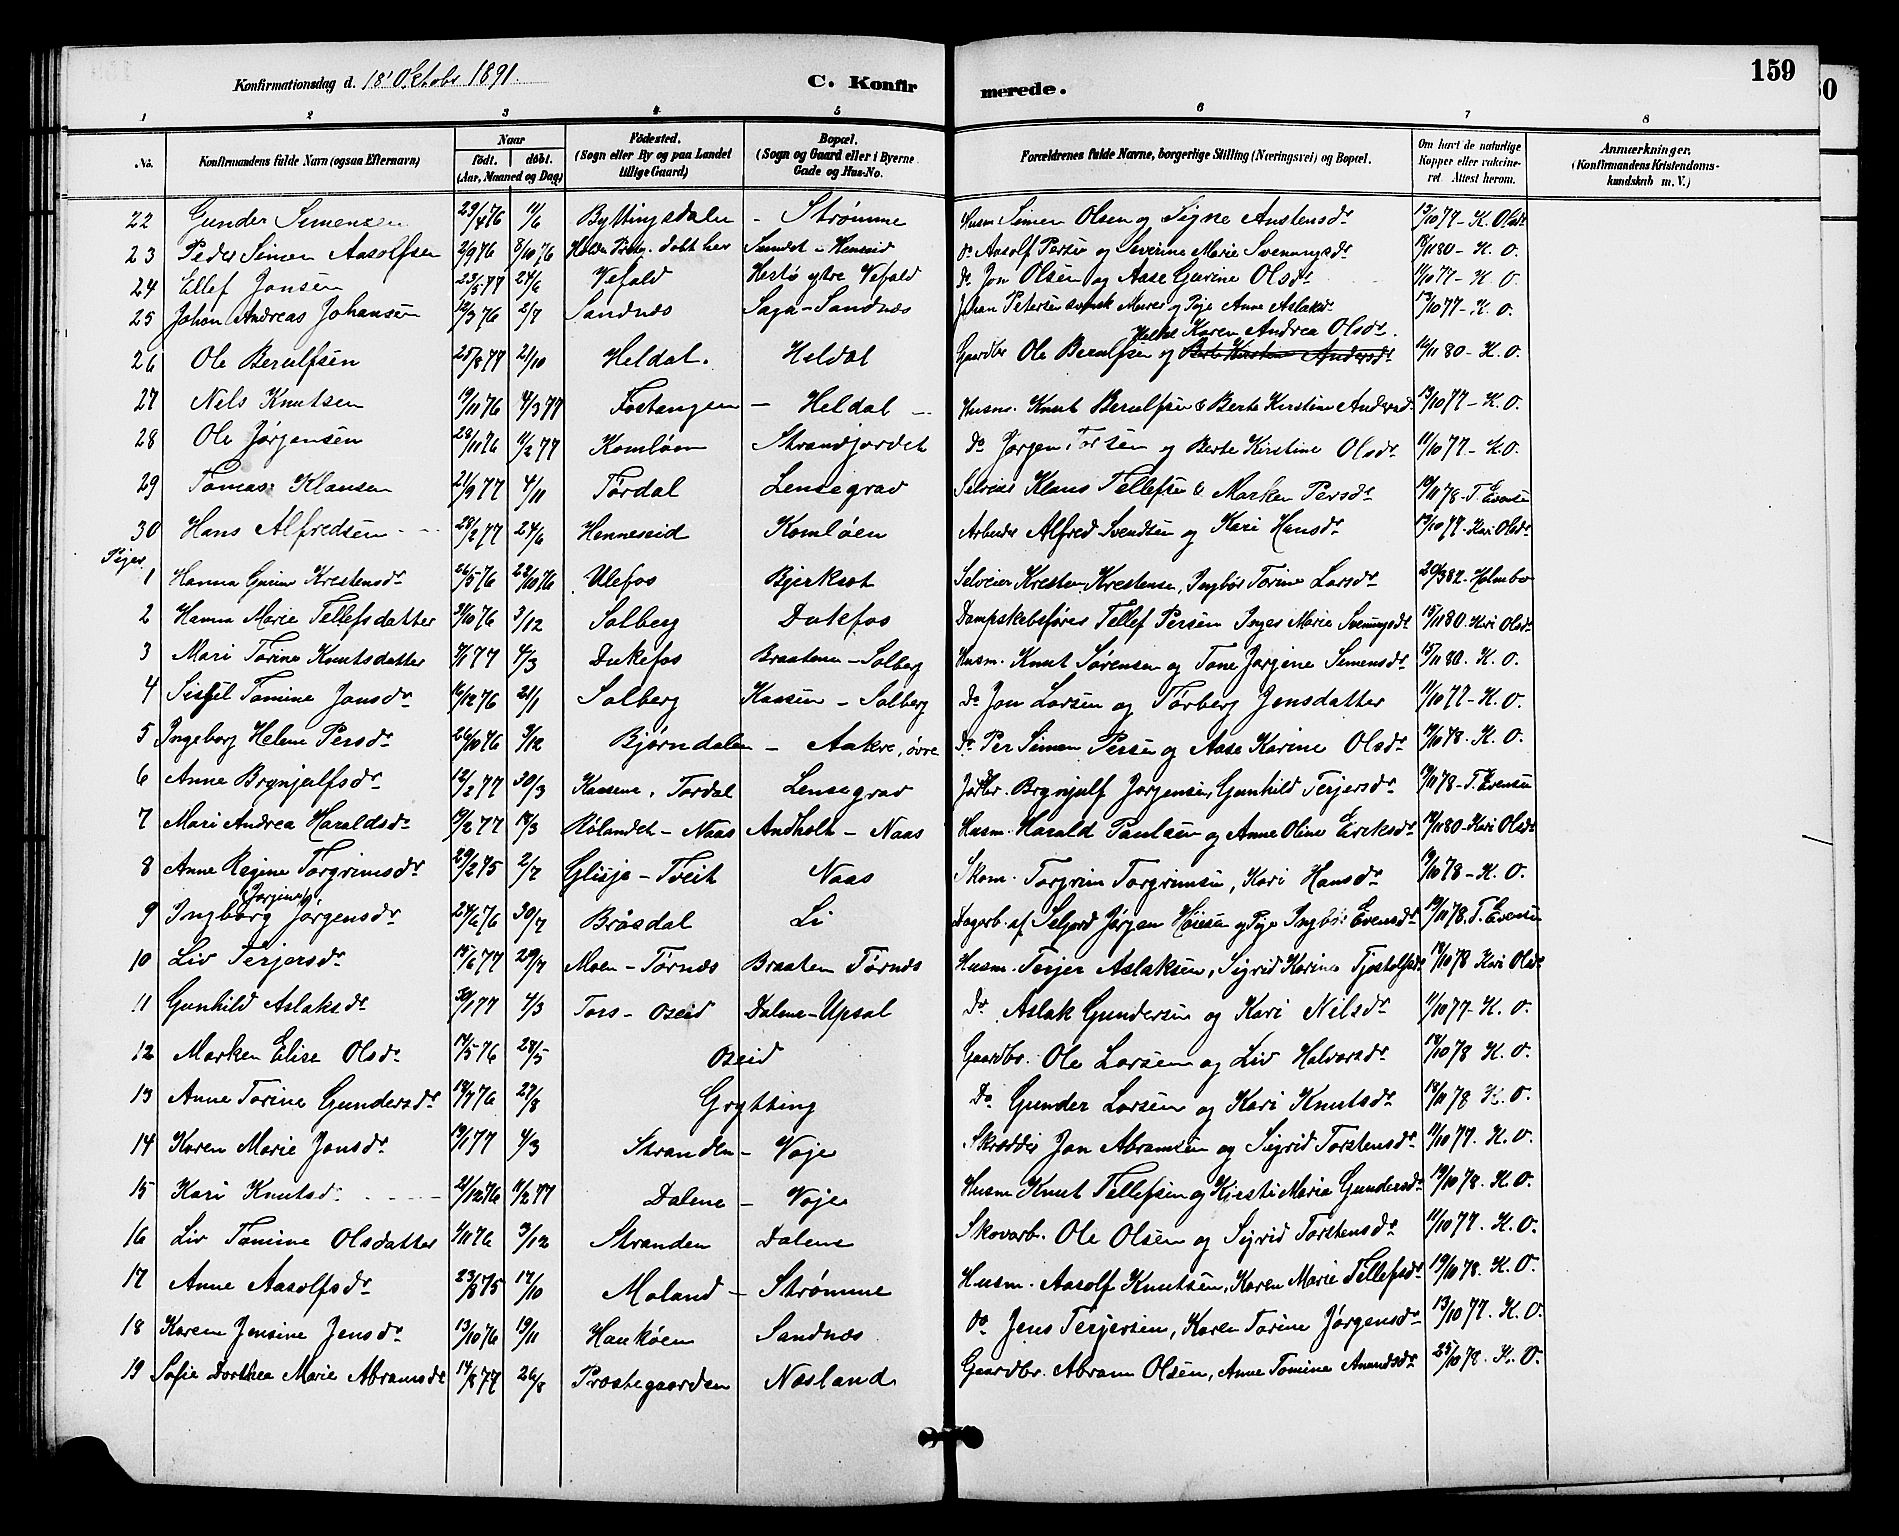 159
Konfirmationsdag d. 18' Oktobr 1891. C. Konfirmerede.
1 2 3 4 5 6 7 8
No. Konfirmandens fulde Navn (ogsaa Efternavn) Naar födt. döbt. (Aar, Maaned og Dag) Födested. (Sogn eller By og paa Landet tillige Gaard) Bopæl. (Sogn og Gaard eller i Byerne Gade og Hus-No. Forældrenes fulde Navne, borgerlige Stilling (Næringsvei) og Bopæl. Om havt de naturlige Kopper eller vakcineret. Attest herom. Anmærkninger. (Konfirmandens Kristendomskundskab m. V.)
22 Gunder Simensen 23/4 76 11/6 Byttingsdalen - Strømme Husm Simen Olsen og Signe Austensdr 13/10 77 - K. Olsdr
23 Peder Simon Aasolfsen 2/9 76 8/10 76 døbt her Sundet - Henseid Do Aasolf Persen og Severine Marie Svenungsdr 80 - K. O.
24 Ellef Jonsen 23/5 77 24/6 Vefald Hestø ytre Vefald Do Jon Olsen og Aase Gurine Olsdr 11/10 77 - K. O.
25 Johan Andreas Johansen 12/3 76 2/7 Sandnæs Saga - Sandnæs Johan Petersen svensk Murer og Pige Anne Aslaksdr 13/10 77 - K. O.
26 Ole Berulfsen 25/8 77 21/10 Heldal. Heldal Gaardbr Ole Berulfsen og Berte Kirstine Andersdr Karen Andrea Olsdr. 16/11 80 - K. O.
27 Nels Knutsen 19/11 76 4/3 77 Fostangen - Heldal - Husm. Knut Berulfsen & Berte Kirstine Andersdr 13/10 77 - K. O.
28 Ole Jørgensen 28/11 76 11/2 77 Komløen Strandjordet Do Jørgen Torsen og Berte Kirstine Olsdr 11/10 77 - K. O.
29 Tomas Klausen 21/9 77 4/11 Tørdal Lensegrav Selveier Klaus Tellefsen & Marken Persdr 19/11 78 - T. Evensen
30 Hans Alfredsen 28/2 77 24/6 Henneseid Komløen Arbeider Alfred Svendsen og Kari Hansdr 13/10 77 - Kari Olsdr
Piger
1 Hanna Gurine Krestensdr 26/5 76 22/10 76 Ulefos Bjerksøt Selveier Kresten Krestensen, Ingbor Torine Larsdr 20/3 82 - Holmboe
2 Hanna Marie Tellefsdatter 31/10 76 3/12 Solberg Dukefos Dampskibsfører Tellef Persen Inger Marie Svenungsdr 15/11 80 - Kari Olsdr
3 Mari Torine Knutsdatter 9/1 77 4/3 Dukefos Braatene - Solberg Husm. Knut Sørensen og Tone Jørgine Simensdr 15/11 80. K. O.
4 Sissel Tomine Jonsdr 16/12 76 21/1 Solberg Kaasen - Solberg Do Jon Larsen og Tørberg Jensdatter 11/10 77 - K. O.
5 Ingeborg Helene Persdr 26/10 76 3/12 Bjørndalen - Aakre, øvre Do Per Simon Persen og Aase Karine Olsdr 19/10 78. K. O.
6 Anne Brynjulfsdr 12/2 77 30/3 Kaasene, Tørdal Lensegrav Jordbr. Brynjulf Jørgensen, Gunhild Terjersdr 19/11 78 - T. Evensen
7 Mari Andrea Haraldsdr 19/2 77 18/3 Rølandet - Naas Andholt - Naas Husm. Harald Paulsen og Anne Oline Eriksdr 80 - Kari Olsdr
8 Anne Regine Torgrimsdr 29/2 75 2/7 Glisje - Tveit Naas Skom. Torgrim Torgrimsen, Kari Hansdr 19/10 78 - K. O.
9 Ingborg Jørgensdr 24/6 76 30/7 Brøsdal Li Dagarb. af Seljord Jørgen og Pige Ingbor Evensdr 19/11 78. T. Evensen
10 Liv Terjersdr 15/6 77 29/7 Moen - Tørnes Braaten Tørnes Husm. Terjer Aslaksen, Sigrid Karine Tjostolfsdr 18/10 78 Kari Olsdr
11 Gunhild Aslaksdr 30/1 77 4/3 Tors - Oseid Dalene - Upsal Do Aslak Gundersen og Kari Nilsdr 11/10 77 - K. O.
12 Marken Elise Olsdr 14/5 76 28/5 Oseid Gaardbr. Ole Larsen og Liv Halvorsdr 18/10 78 K. O.
13 Anne Torine Gundersdr 18/7 76 27/8 Grytting Do Gunder Larsen og Kari Knutsdr 18/11 78 K. O.
14 Karen Marie Jonsdr 19/1 77 4/3 Stranden - Voje Skrædder Jon Abramsen og Sigrid Torstensdr 11/10 77. K. O.
15 Kari Knutsdr 21/12 76 11/2 77 Dalene - Voje Husm Knut Tellefsen og Kirsti Marie Gundersdr 19/10 78. K. O.
16 Liv Tomine Olsdatter 4/11 76 3/12 Stranden Dalene Skovarb. Ole Olsen og Sigrid Torstensdr 11/10 77. K. O.
17 Anne Aasolfsdr 23/8 75 17/10 Moland - Strømme Husm. Aasolf Knutsen, Karen Marie Tellefsdr 19/10 78. K. O.
18 Karen Jensine Jensdr 13/10 76 19/11 Haukøen Sandnæs Do Jens Terjersen, Karen Torine Jørgensdr 13/10 77. K. O.
19 Sofie Dorthea Marie Abramsdr 14/8 77 26/8 Prostegaarden Næsland Gaardbr. Abram Olsen, Anne Tomine Amundsdr 25/10 78. K. O.